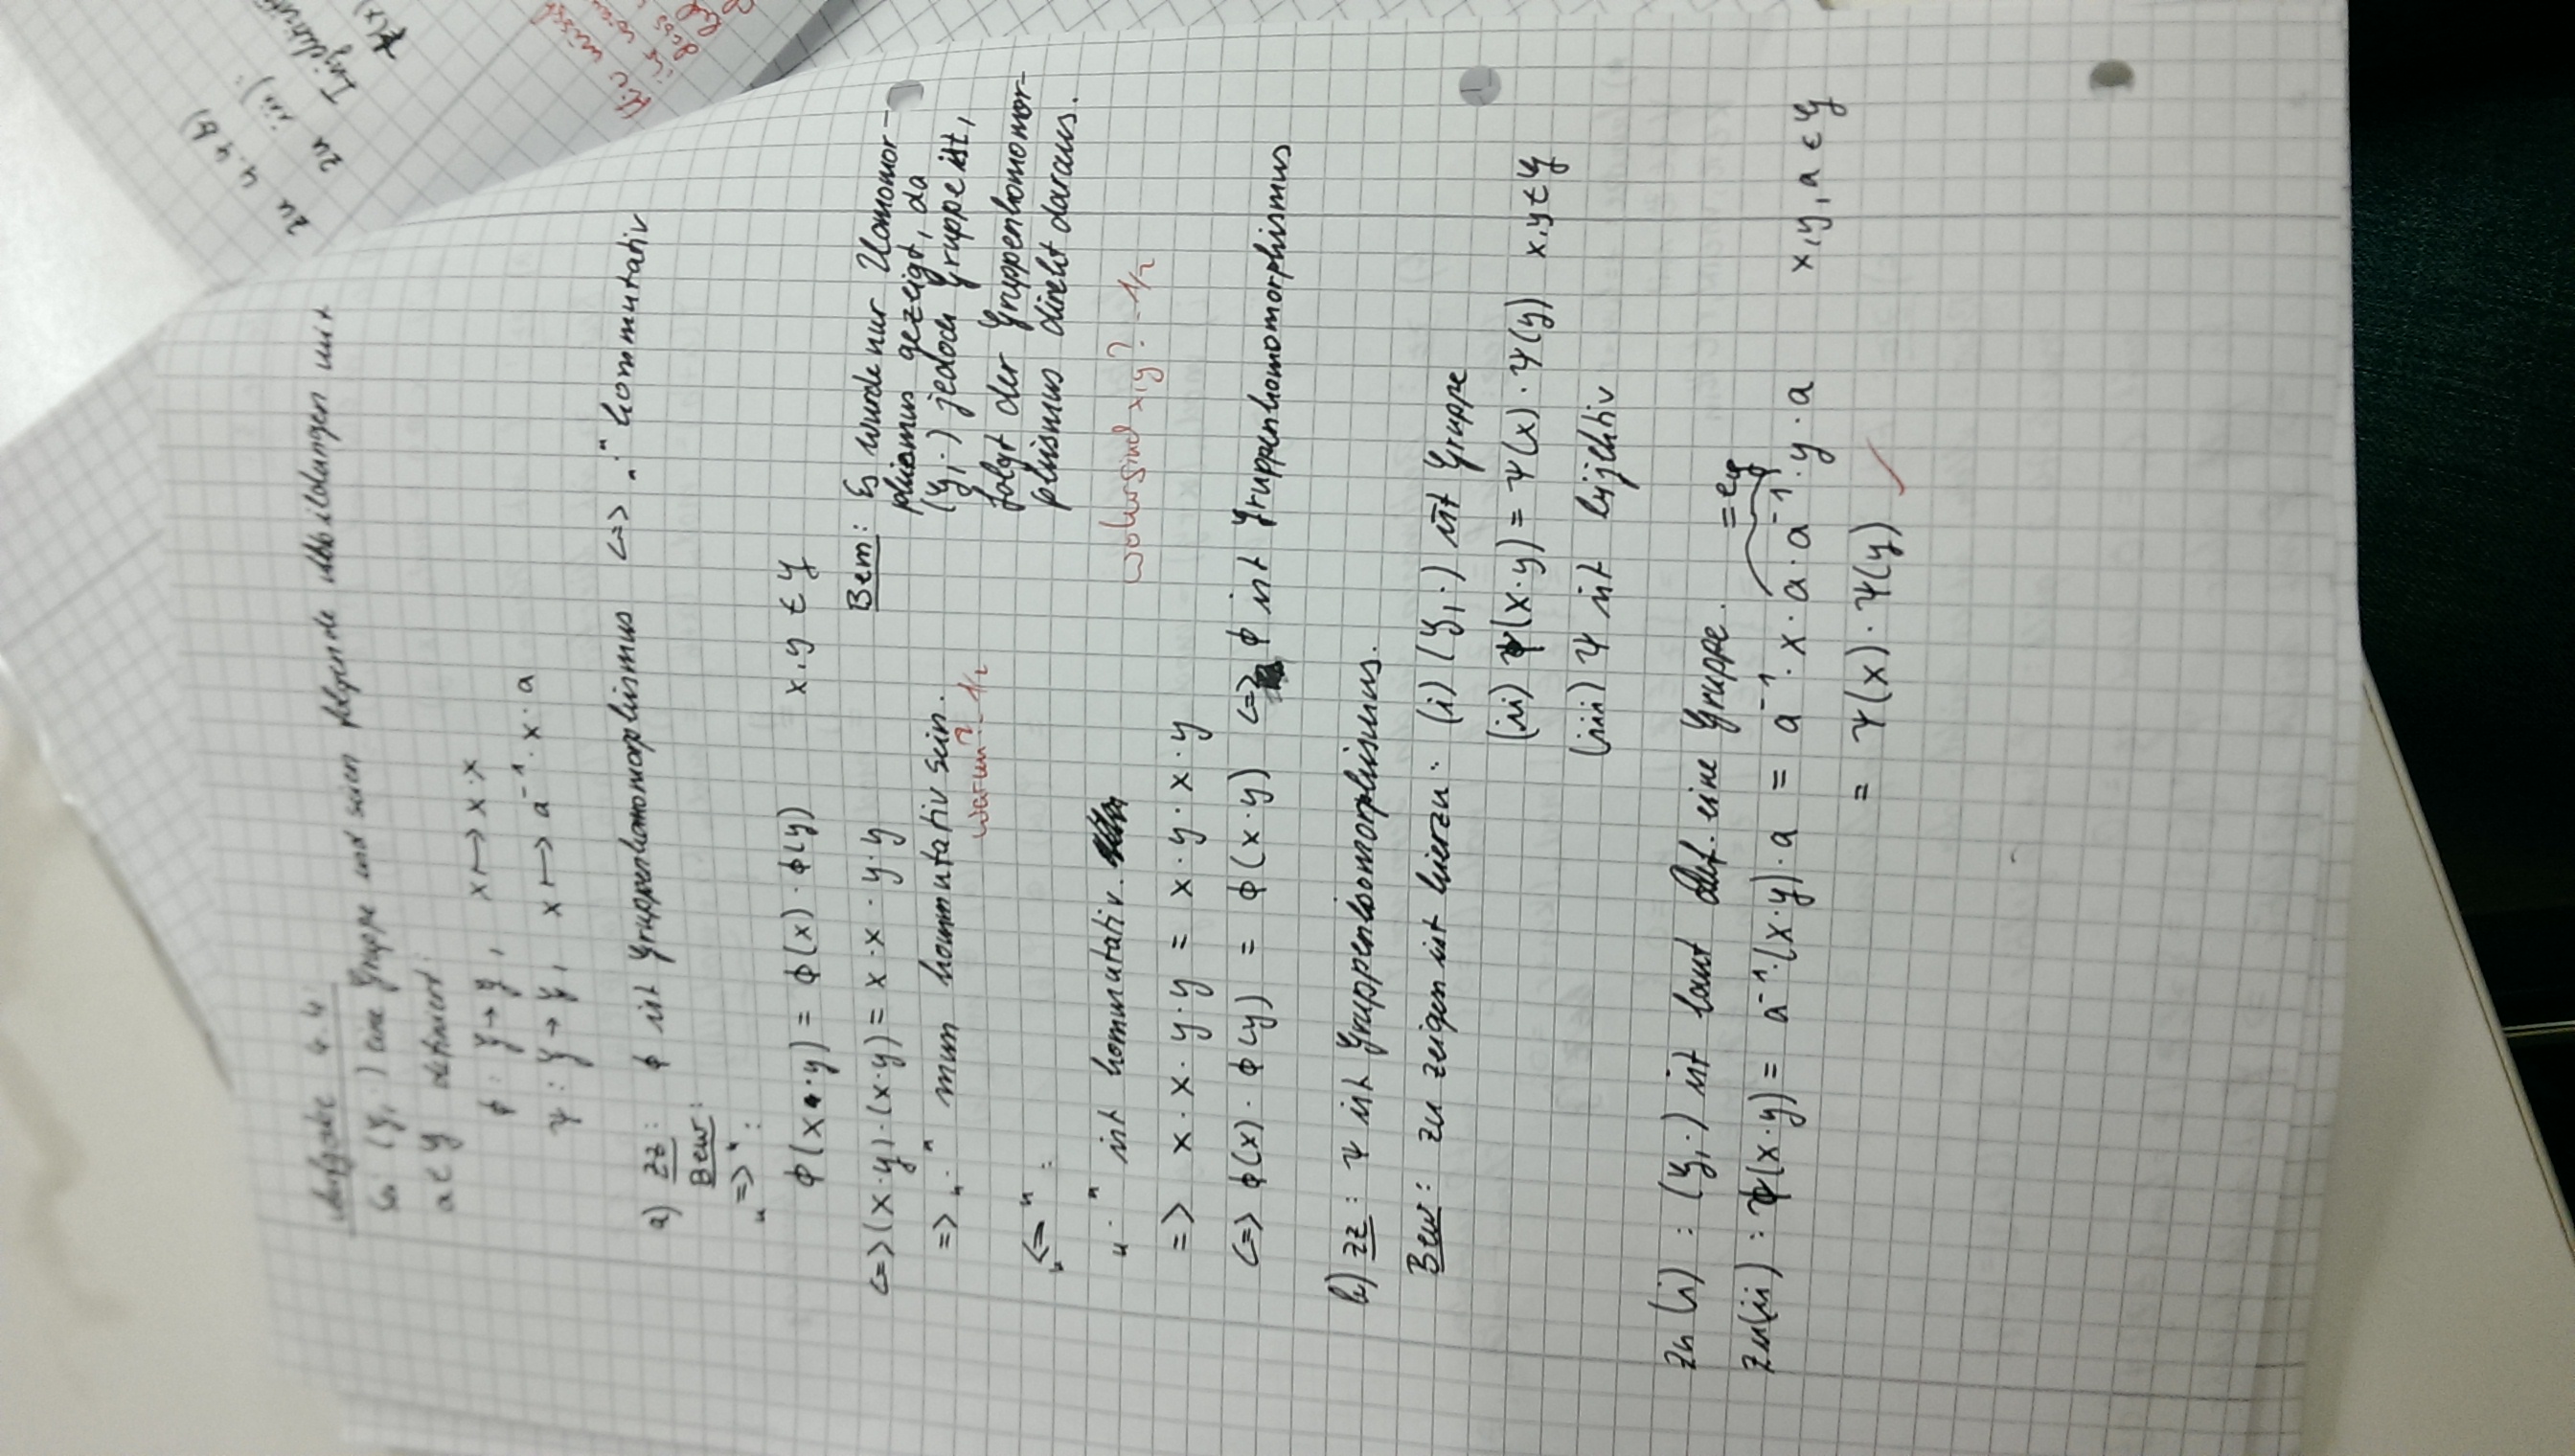 Aufgabe 4.4:
Sei (G,·) eine Gruppe und seien folgende Abbildungen mit
a ∈ G definiert:
ϕ : G → G, x ↦ x·x
ψ : G → G, x ↦ a⁻¹·x·a
a) zz: ϕ ist Gruppenhomomorphismus <=> „·" kommutativ
Bew:
„=>":
ϕ(x·y) = ϕ(x)·ϕ(y) x,y ∈ G
<=> (x·y)·(x·y) = x·x·y·y
=> „·" muss kommutativ sein.
warum? -1/2
Bem: Es wurde nur Homomor-
phismus gezeigt, da
(G,·) jedoch Gruppe ist,
folgt der Gruppenhomomor-
phismus direkt daraus.
„<=":
„·" ist kommutativ.
woher sind x,y? -1/2
=> x·x·y·y = x·y·x·y
<=> ϕ(x)·ϕ(y) = ϕ(x·y) <=> ϕ ist Gruppenhomomorphismus
b) zz: ψ ist Gruppenisomorphismus.
Bew: zu zeigen ist hierzu: (i) (G,·) ist Gruppe
(ii) ψ(x·y) = ψ(x)·ψ(y) x,y ∈ G
(iii) ψ ist bijektiv
zu (i): (G,·) ist laut Def. eine Gruppe.
= e_G
zu (ii): ψ(x·y) = a⁻¹·(x·y)·a = a⁻¹·x·a·a⁻¹·y·a x,y,a ∈ G
= ψ(x)·ψ(y)
zu 4.4 b)
zu iii):